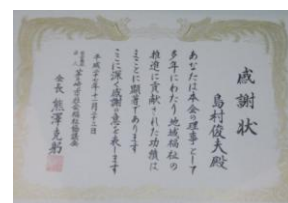 感謝状
島村俊夫殿
あなたは本会の理事として
多年にわたり地域福祉の
推進に貢献された功績は
まことに顕著であります
ここに深く感謝の意を表します
平成二十七年十一月二十二日
会長 熊澤克躬